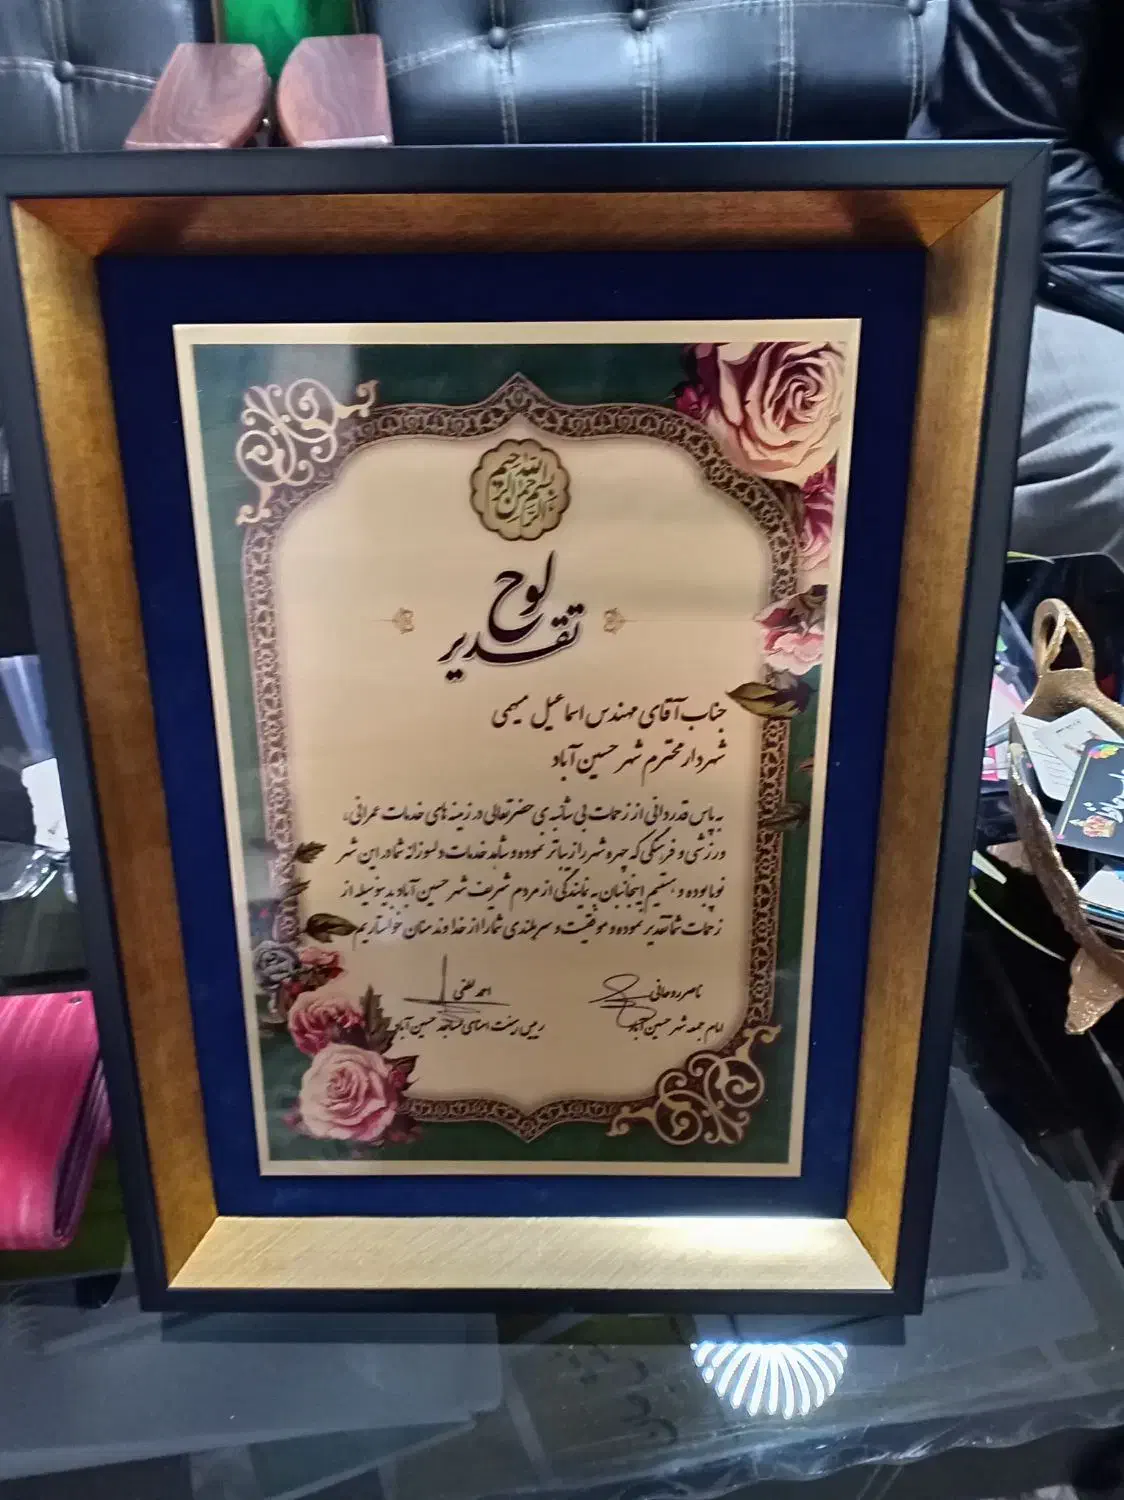 بسم الله الرحمن الرحیم
لوح
تقدیر
جناب آقای مهندس اسماعیل میهمی
شهردار محترم شهر حسین آباد
به پاس قدردانی از زحمات بی شائبه ی حضرتعالی در زمینه های خدمات عمرانی،
ورزشی و فرهنگی که چهره شهر را زیباتر نموده و شاهد خدمات دلسوزانه شما در این شهر
نوپا بوده و هستیم اینجانبان به نمایندگی از مردم شریف شهر حسین آباد بدینوسیله از
زحمات شما تقدیر نموده و موفقیت و سربلندی شما را از خداوند منان خواستاریم
ناصر روحانی
احمد لطفی
امام جمعه شهر حسین آباد
رییس هیئت امنای مساجد حسین آباد